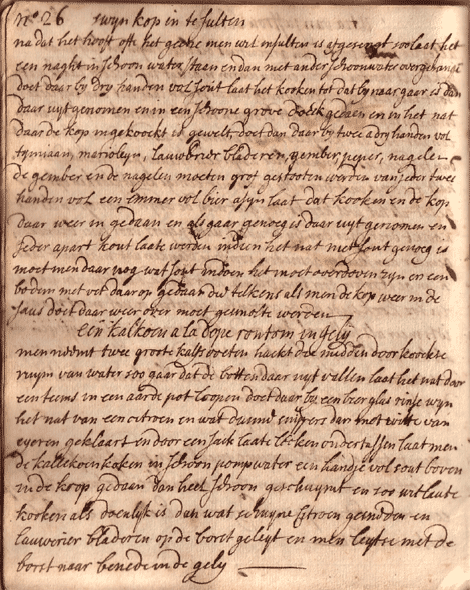 no 26 swyn kop in te sulten
na dat het hooft ofte het geene men wil insulten is afgesengt soo laat het
een naght in schoon water staan en dan met ander schoon water overgehange
doet daar by dry handen vol sout laat het kooken tot dat by naar gaar is dan
daar uyt genomen en in een schoone grove doeck gedaen en in het nat
daar de kop in gekoockt is gewelt, doet dan daar by twee a dry handen vol
tymiaan, marioleyn, lauwerier bladeren, gember peper, nagelen
de gember en de nagelen moeten grof gestooten werden van jeder twee
handen vol een emmer vol bier asyn laat dat kooken en de kop
daar weer in gedaan en als gaar genoeg is daar uyt genomen en
jeder apart kout laate werden indien het nat niet sout genoeg is
moet men daar nog wat sout in doen het moet overdoven zyn en een
bodem met vet daar op gedaan die telkens als men de kop weer in de
saus doet daar weer over moet gesmolte werden
een kalkoen a la dope rontom in gely
men neemt twee groote kalfs voeten hackt die midden door koockt
ruym van water soo gaar dat de botten daar uyt vallen laat het nat door
een teems in een aarde pot loopen doet daar by een bier glas rinse wyn
het nat van een citroen en wat dunne snippers dar met witte van
eyeren geklaart en door een sack laate lecken ondertussen laat men
de kallekoen koken in schoon pompwater een handje vol sout boven
in de krop gedaan dan heel schoon geschuymt en soo wit laate
kooken als doenlyk is dan wat schuyne citroen gesneden en
lauwerier bladeren op de borst geleyt en men leytse met de
borst naar beneden in de gely